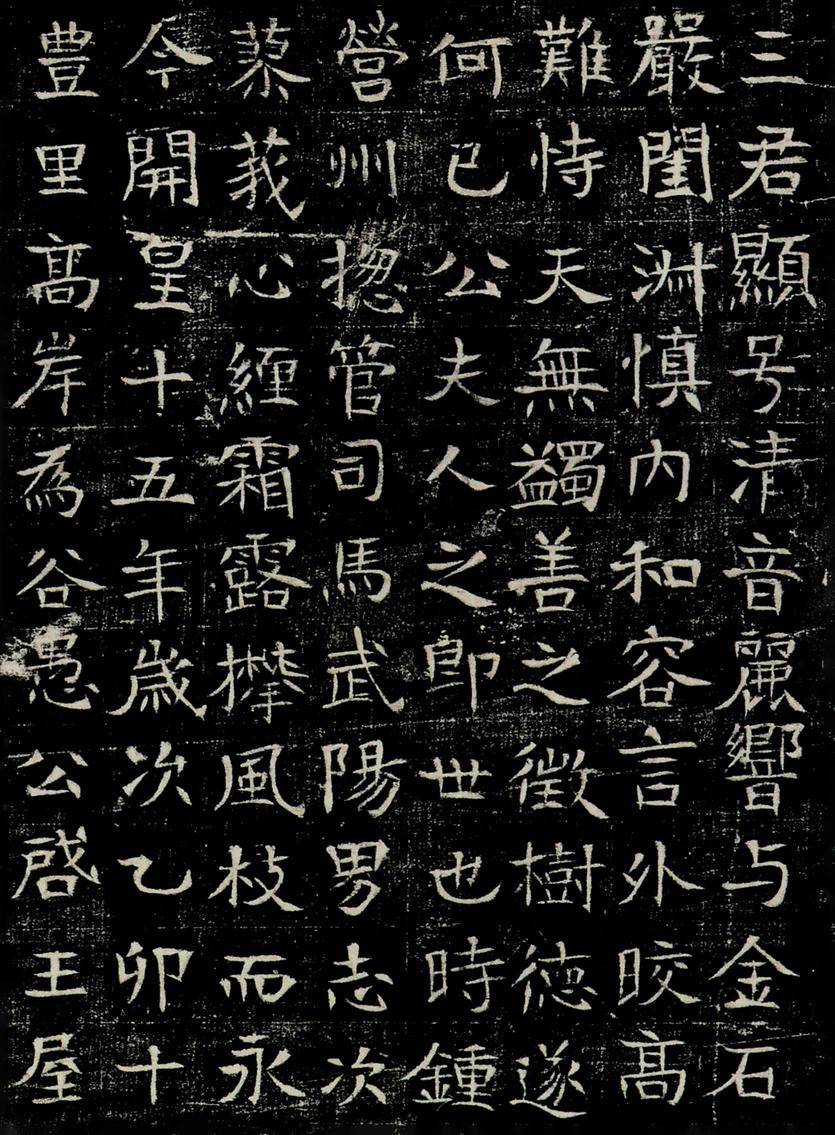 三君顯号清音麗響与金石
嚴閨淋慎内和容言外晈髙
難恃天無蠲善之徵樹德遂
何已公夫人之即世也時鍾
營州揔管司馬武陽男志次
蓼莪心緾霜露攀風枝而永
今開皇十五年歲次乙卯十
豊里髙岸為谷愚公啓王屋